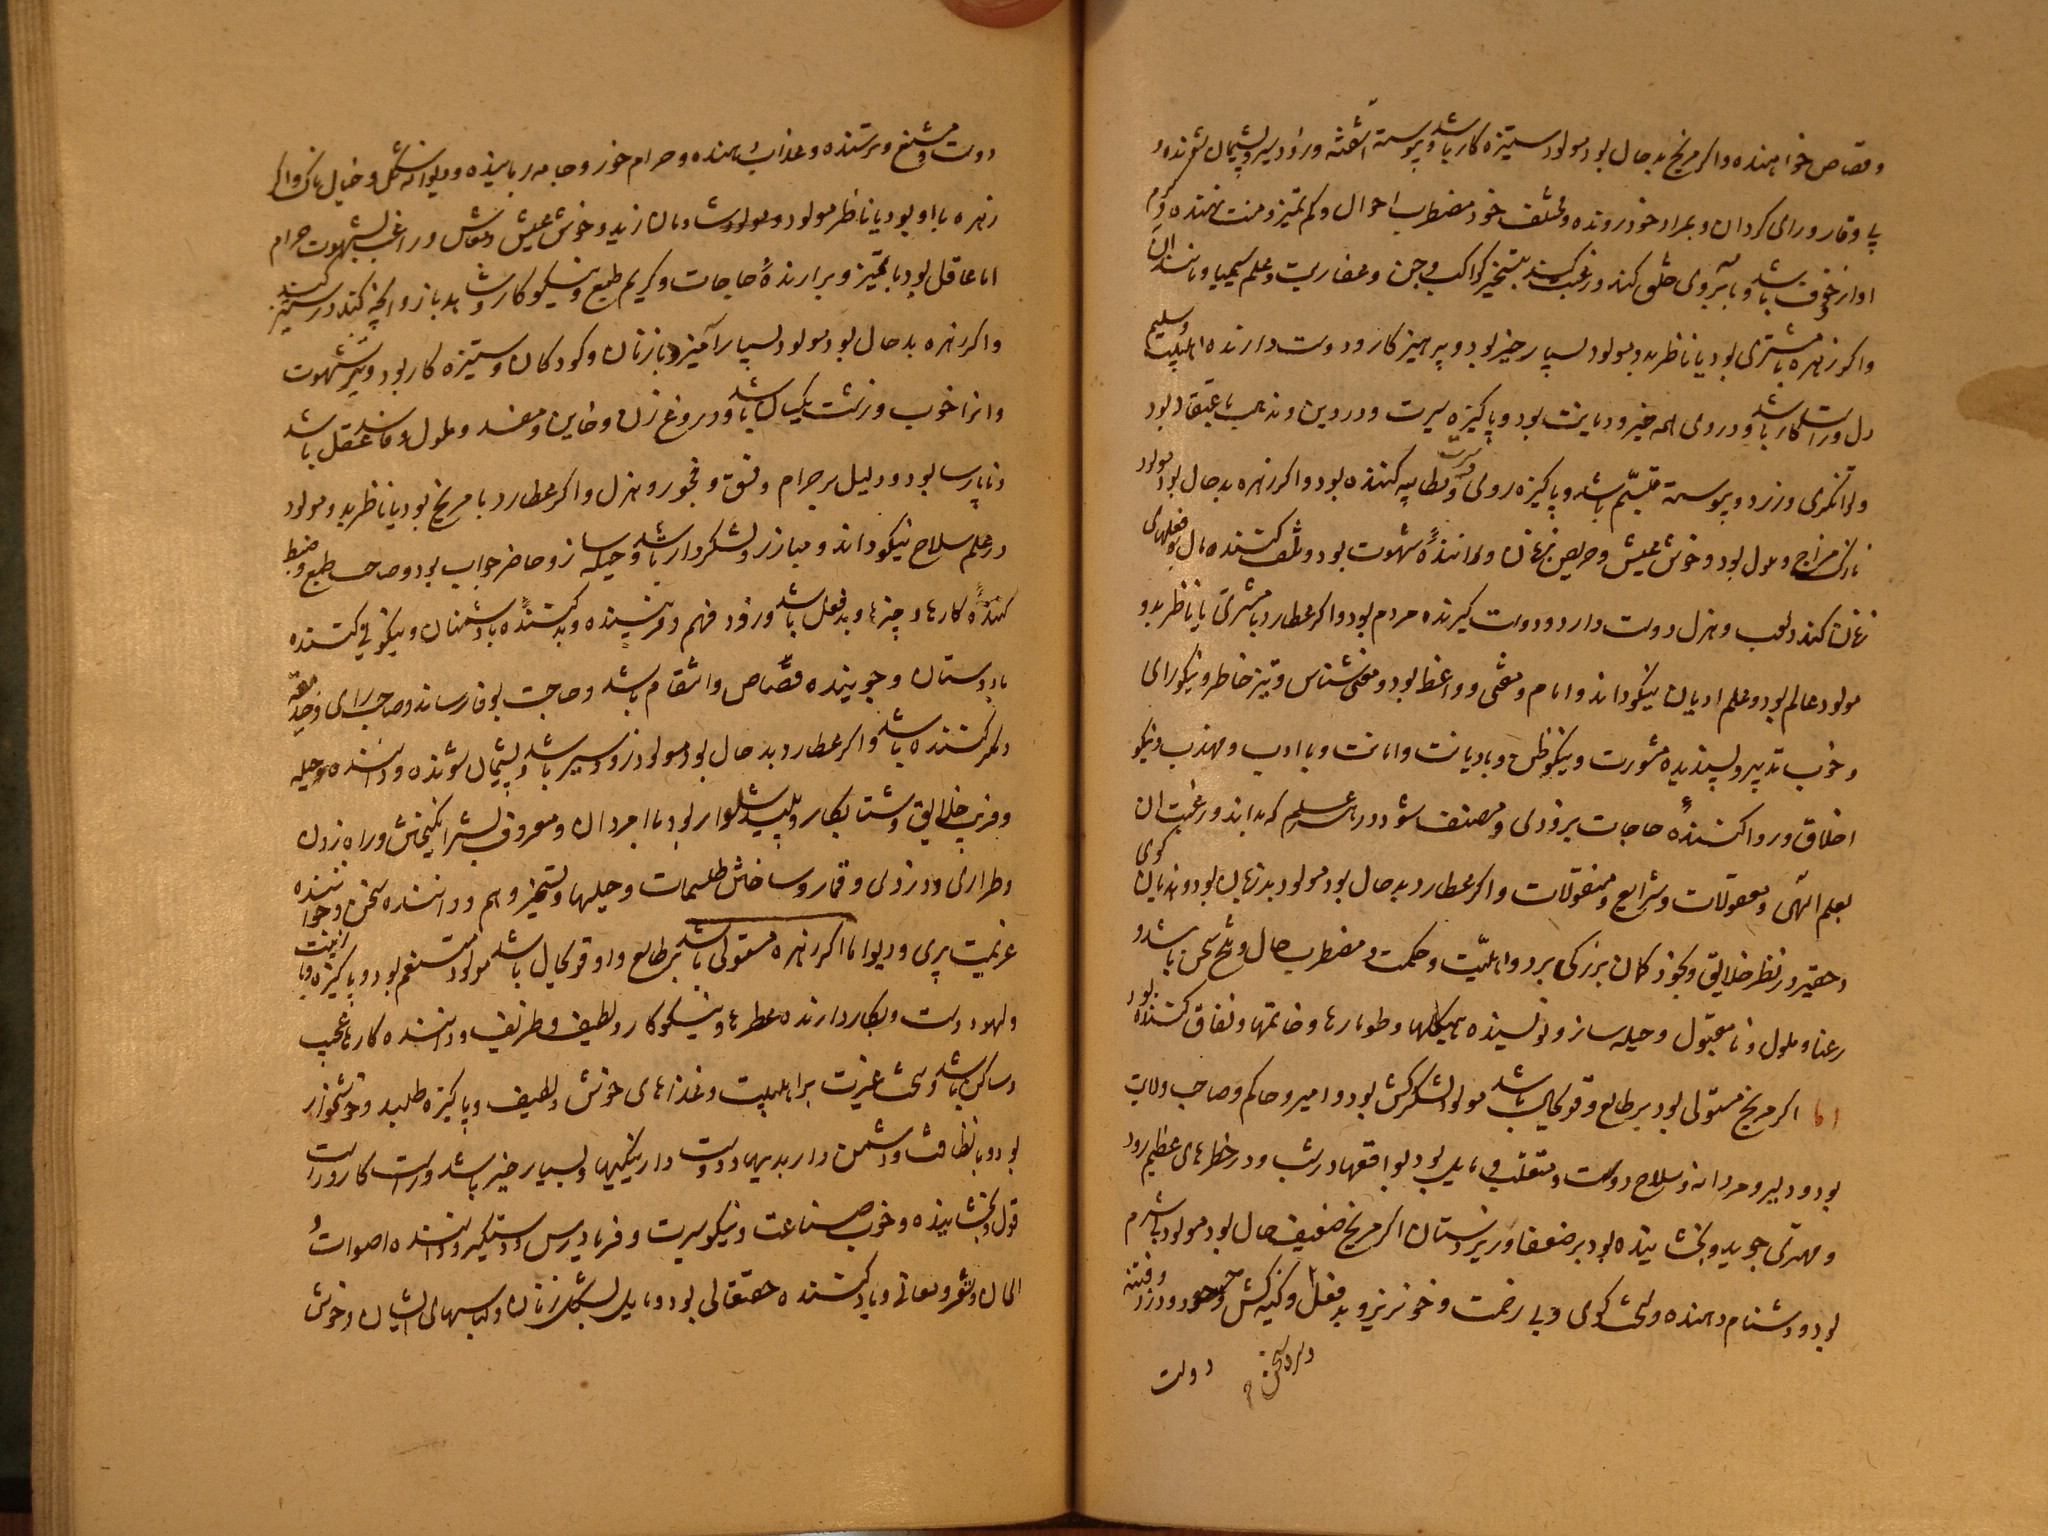 و قصاص خواهنده و اگر مریخ بدحال بود مولود ستیزه کار باشد و پیوسته آشفته و زود سیر و پشیمان شونده و
بی وقار و رای گردان و بمراد خود رونده و مضطرب احوال و کم تمیز و منت نهنده و مردم
از او خوف باشد و با بروی خلق کند و رغبت کند بتسخیر کواکب و جن و عفاریت و علم سیمیا و مانند آن
و اگر زهره با مشتری بود یا ناظر بدو مولود بسیار خیر بود و پرهیزکار و دوست دارنده اهلبیت و سلیم
دل و راست کار باشد و در وی همه خیر و دیانت بود و پاکیزه سیرت و در دین و مذهب با اعتقاد بود
و توانگری ورزد و پیوسته متبسم باشد و پاکیزه روی و کننده بود و اگر زهره بدحال بود مولود
نازک مزاج و ملول بود و خوش عیش و حریص بزنان و شهوت بود و تلف کننده مال و فعلهای
زنان کند و لعب و هزل دوست دارد و دوست گیرنده مردم بود و اگر عطارد با مشتری یا ناظر بدو
مولود عالم بود و علم ادیان نیکو داند و امام و مفتی و واعظ بود و شناس و تیز خاطر و نیکو رای
و خوب تدبیر و پسندیده مشورت و نیکو ظن و با دیانت و امانت و با ادب و مهذب و نیکو
اخلاق و روا کننده حاجات بزودی و مصنف شود در هر علم که بداند و رغبت آن
بعلم الهی و معقولات و شرایع و منقولات و اگر عطارد بدحال بود مولود بد زبان بود و هذیان گوی
و حقیر در نظر خلایق و بخود گمان بزرگی برد و اهلیت و حکمت و مضطرب حال و تلخ سخن باشد و
رعنا و ملول و نامقبول و حیله ساز و نویسنده هیکلها و طومارها و خاتمها و نفاق کننده بود
اما اگر مریخ مستولی بود بر طالع و قوی حال باشد مولود لشکرکش بود و امیر و حاکم و صاحب ولایت
بود و دلیر و مردانه و سلاح دوست و متقلب و مایل بود بواقعها در شب و در خطرهای عظیم رود
و مهتری جوید و بخشاینده بود بر ضعفا و زیردستان اگر مریخ ضعیف حال بود مولود بی شرم
بود و دشنام دهنده و فحش گوی و بی رحمت و خونریز و بد فعل و کینه کش و حسود و دزد و فتنه
دوست
دوست و مشنع و ترسنده و عذاب دهنده و حرام خور و جامه رباینده و دیوانه شکل و خیال ناک و اگر
زهره با او بود یا ناظر مولود شادمان زید و خوش عیش و معاش و راغب بشهوت حرام
اما عاقل بود با تمیز و برآرنده حاجات و کریم طبع و نیکو کار و شاهد باز و آنچه کند در ستر کند
و اگر زهره بدحال بود مولود بسیار آمیزد با زنان و کودکان و ستیزه کار بود و تیز شهوت
و او را خوب و زشت یکسان باشد و دروغ زن و خاین و مفسد و ملول و فاسد عقل باشد
و ناپارسا بود و دلیل بر حرام و فسق و فجور و هزل و اگر عطارد با مریخ بود یا ناظر بدو مولود
در علم سلاح نیکو داند و مبارز و لشکردار باشد و حیله ساز و حاضر جواب بود و صاحب طبع و ضبط
کننده کارها و چیزها و بد فعل باشد و زود فهم و فریبنده و بد کننده با دشمنان و نیکویی کننده
با دوستان و جوینده قصاص و انتقام باشد و حاجت بوفا رساند و صاحب رای و خدیعه
و مکر کننده باشد و اگر عطارد بدحال بود مولود زود سیر باشد و پشیمان شونده و داننده حیله
و فریب خلایق و شتابکار و پلید شلوار بود با امردان و معروف بشر انگیختن و راه زدن
و طراری و دزدی و قمار و ساختن طلسمات و حیلها و تسخیر وهم و داننده سخن و خواننده
عزیمت پری و دیو اما اگر زهره مستولی باشد بر طالع و او قوی حال باشد مولود متنعم بود و پاکیزه و با زینت
و لهو دوست و بکار دارنده عطرها و نیکو کار و لطیف و ظریف و داننده کارها عجیب
و ساکن باشد و سخت غیرت بر اهلبیت و غذاهای خوش و لطیف و پاکیزه طلبد و خوشخوار
بود و با نظافت و دشمن دار بدیها و دوست دار نیکیها و بسیار خیر باشد و راست کار و راست
قول و بخشاینده و خوب صناعت و نیکو سیرت و فریادرس و دستگیر و داننده اصوات و
الحان و شعر و معانی و یاد کننده حقتعالی بود و مایل بشکل زنان و لباسهای ایشان و خوش